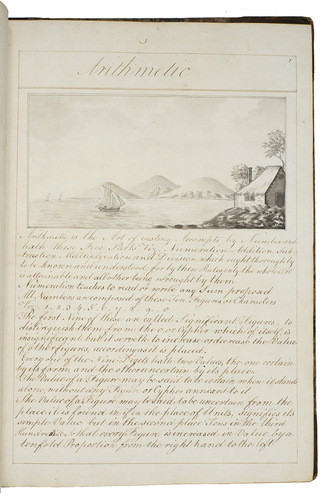 Arithmetic
Arithmetic is the Art of casting Accompts by Numbers and
hath these Five Parts Viz. Numeration Addition Sub
traction Multiplication and Division which ought thoroughly
to be known and understood, for by these Rules only the whole Art
is attainable and all other being wrought by them
Numeration teaches to read or write any Sum proposed
All Numbers are composed of these Ten Figures or Characters
1. 2. 3. 4. 5. 6. 7. 8. 9. 0
The first Nine of these are called Significant Figures, to
distinguish them from the 0 or Cypher which of itself is
insignificant but it serveth to increase or decrease the Value
of other figures, according as it is placed.
Every one of these Digets hath two Values, the one certain
by its form, and the other uncertain by its place,
The Value of a Figure may be said to be certain when it stands
alone, without any Figure or Cypher annexed to it
The Value of a Figure may be said to be uncertain from the
place it is found in if in the place of Units, signifies its
simple Value but in the second place Tens in the third
Hundreds & that every Figure is increased in Value by a
tenfold Proportion from the right hand to the left